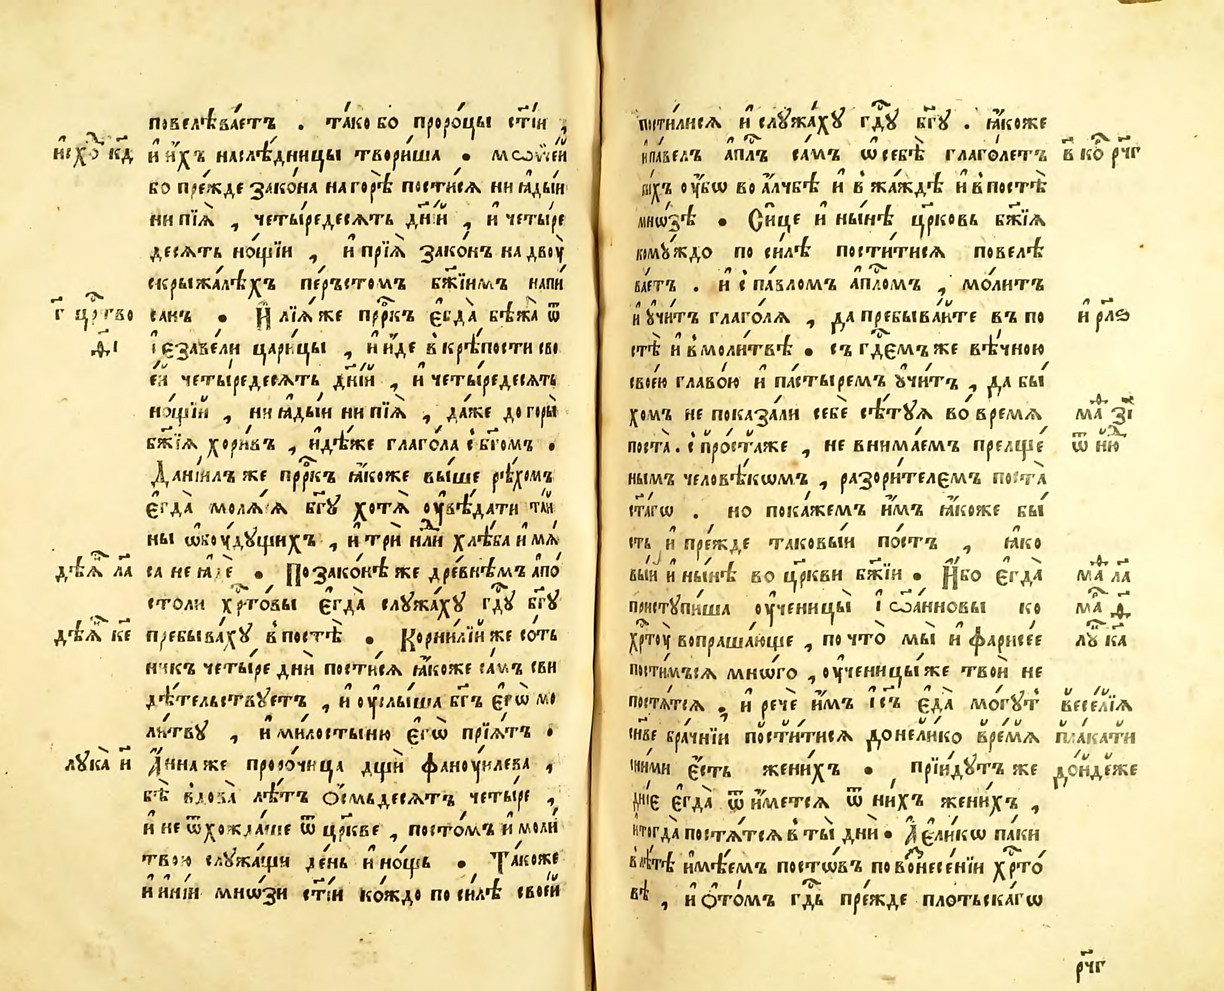 повелѣва́етъ . та́ко бо проро́цы ст҃і́и ,
и҆схѡ҃ кд҃ и҆ и҆́хъ наслѣ́дницы твори́ша . мѡѷсе́й
бо пре́жде зако́на на горѣ̀ пости́сѧ ни ꙗ҆ды́й
ни пїѧ̀ , четы́редесѧть дні́й , и҆ четы́ре
десѧть но́щїй , и҆ прїѧ̀ зако́нъ на двоу̀
скрыжа́лѣхъ пе́рьстомъ бж҃їимъ напи́
г҃ црⷭ҇тво санъ . И҆лїѧ́ же прⷪ҇ро́къ є҆гда̀ бѣжа̀ ѿ
ѳ҃і і҆єзаве́ли цари́цы , и҆ и҆́де в крѣ́пости сво
е́й четы́редесѧть дні́й , и҆ четы́редесѧть
но́щїй , ни ꙗ҆ды́й ни пїѧ̀ , да́же до горы̀
бж҃їѧ хори́въ , и҆дѣ́же глаго́ла с бг҃омъ .
Данїи́лъ же прⷪ҇ро́къ ꙗ҆́коже вы́ше рѣ́хомъ
є҆гда̀ молѧ́сѧ бг҃у хотѧ̀ оу҆вѣ́дати та́й
ны ѡ҆боу́дущихъ , и҆ трѝ нⷣли хлѣ́ба и҆ мѧ́
дѣѧ҃ ла са не ꙗ҆дѐ . По зако́нѣ же дре́внѣмъ а҆по́
столи хрⷭ҇то́вы є҆гда̀ служа́ху гдⷭ҇у бг҃у
дѣѧ҃ ке пребыва́ху в постѣ̀ . Корни́лїй же со́ть
никъ четы́ре дни̑ пости́сѧ ꙗ҆́коже са́мъ сви
дѣ́тельствуетъ , и҆ оу҆слы́ша бг҃ъ є҆гѡ̀ мо
ли́тву , и҆ ми́лостыню є҆гѡ̀ прїѧ́тъ .
лука̀ и҃ А҆́нна же проро́чица дщѝ фаноуи́лева ,
бѣ̀ вдова̀ лѣ́тъ ѻ҆́смьдесѧтъ четы́ре ,
и҆ не ѿхожда́ше ѿ цр҃кве , посто́мъ и҆ моли́
твою служа́щи де́нь и҆ но́щь . Та́коже
и҆ и҆ні́и мнѡ́зи ст҃і́и ко́ждо по си́лѣ свое́й
пости́лисѧ и҆ служа́ху гдⷭ҇у бг҃у . ꙗ҆́коже
и҆ па́велъ а҆пⷭ҇лъ са́мъ ѡ҆ себѣ̀ глаго́летъ в҃ ко҃ рч҃г
си́хъ оу҆́бѡ во а҆́лчбѣ и҆ в жа́ждѣ и҆ в постѣ̀
мнѡ́зѣ . Си́це и҆ ны́нѣ цр҃ковь бж҃їѧ
кому́ждо по си́лѣ пости́тисѧ повелѣ
ва́етъ . и҆ с па́вломъ а҆пⷭ҇ломъ , мо́литъ
и҆ оу҆́читъ глаго́лѧ , да пребыва́йте въ по и҆ рл҃ѕ
стѣ̀ и҆ в моли́твѣ . съ гдⷭ҇емъ же вѣ́чною
свое́ю главо́ю и҆ па́стыремъ оу҆́читъ , да бы́
хомъ не показа́ли себѐ сѣ́туѧ во вре́мѧ маѳ҃ зі҃
поста̀ . с про́ста же , не внима́емъ прелще́ ѿ ню҃
нымъ человѣ́кѡмъ , разори́телємъ поста̀
ст҃а́гѡ . но пока́жемъ и҆̀мъ ꙗ҆́коже бы́
сть и҆ пре́жде таковы́й по́стъ , ꙗ҆ко
вы́й и҆ ны́нѣ во цр҃кви бж҃їи . И҆́бо є҆гда̀ маѳ҃ ла
приступи́ша оу҆ченицы̀ і҆ѡа́нновы ко ма҃ ѳ҃
хрⷭ҇тоу̀ вопраша́юще , по что̀ мы̀ и҆ фарисе́е лу҃ ка
пости́мъсѧ мно́гѡ , оу҆ченицы́ же твои̑ не
постѧ́тсѧ , и҆ речѐ и҆̀мъ і҆с҃ъ є҆да̀ мо́гут весе́лїѧ
сы́нове бра́чнїи пости́тисѧ доне́лико вре́мѧ пла́кати
с ни́ми є҆́сть жени́хъ . прїи́дутъ же до́йдеже
дні́е є҆гда̀ ѿи́метсѧ ѿ ни́хъ жени́хъ ,
и҆ тогда̀ постѧ́тсѧ в ты̑ дни̑ . А҆ є҆ли́кѡ па́ки
в лѣ́тѣ и҆мѣ́емъ посто́въ по вознесе́нїи хрⷭ҇то́
вѣ , и҆ ѻ҆ то́мъ гдⷭ҇ь пре́жде пло́тьскагѡ
рч҃г